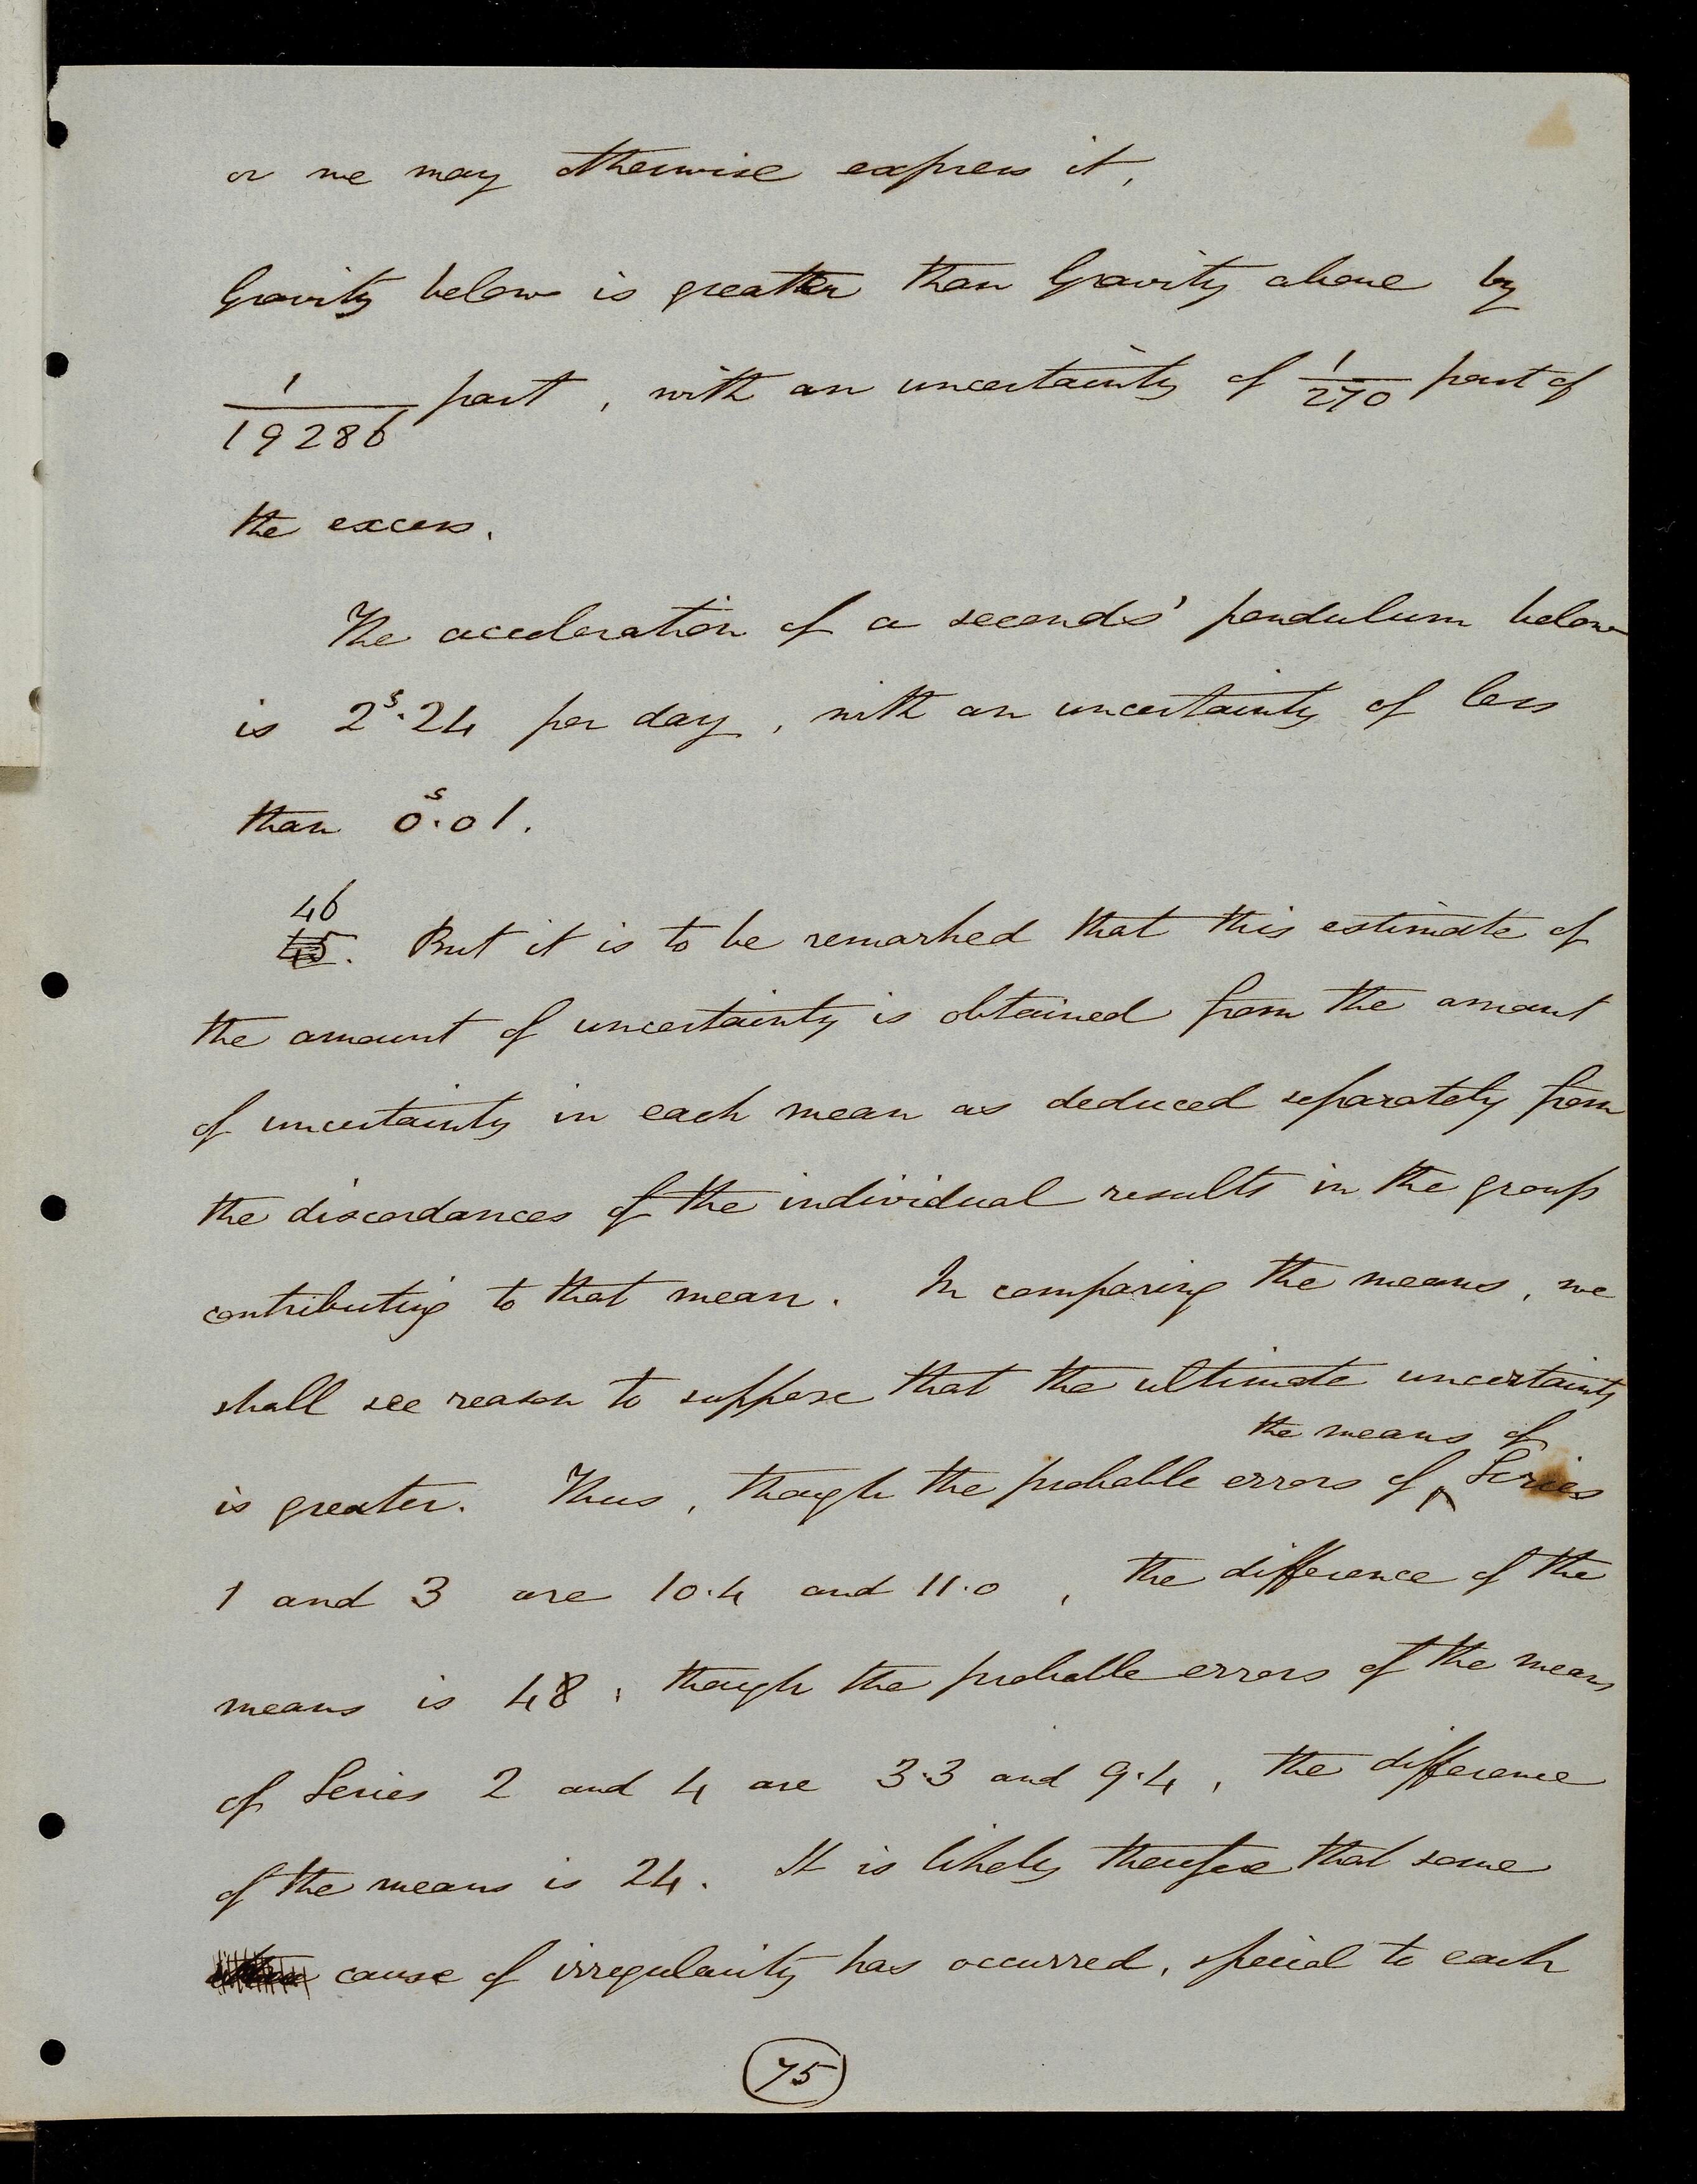 or we may otherwise express it,
Gravity below is greater than Gravity above by
1/19286 part, with an uncertainty of 1/270 part of
the excess.
The acceleration of a seconds' pendulum below
is 2ˢ·24 per day, with an uncertainty of less
than 0ˢ·01.
46
45. But it is to be remarked that this estimate of
the amount of uncertainty is obtained from the amount
of uncertainty in each mean as deduced separately from
the discordances of the individual results in the group
contributing to that mean. In comparing the means, we
shall see reason to suppose that the ultimate uncertainty
the means of
is greater. Thus, though the probable errors of ‸ Series
1 and 3 are 10·4 and 11·0, the difference of the
means is 48; though the probable errors of the means
of Series 2 and 4 are 3·3 and 9·4, the difference
of the means is 24. It is likely therefore that some
cause of irregularity has occurred, special to each
75